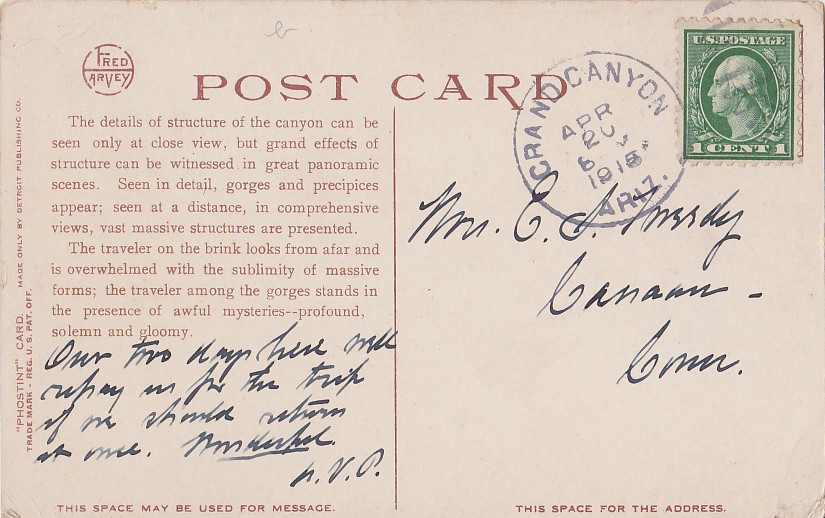 FRED
HARVEY
POST CARD
The details of structure of the canyon can be
seen only at close view, but grand effects of
structure can be witnessed in great panoramic
scenes. Seen in detail, gorges and precipices
appear; seen at a distance, in comprehensive
views, vast massive structures are presented.
The traveler on the brink looks from afar and
is overwhelmed with the sublimity of massive
forms; the traveler among the gorges stands in
the presence of awful mysteries--profound,
solemn and gloomy.
Our two days here will
repay us for the trip
if we should return
at once. Wonderful.
THIS SPACE MAY BE USED FOR MESSAGE.
"PHOSTINT" CARD. MADE ONLY BY DETROIT PUBLISHING CO.
TRADE MARK - REG. U.S. PAT. OFF.
GRAND CANYON
APR
1915
ARIZ.
U.S. POSTAGE
1 CENT 1
E. S.
Canaan -
Conn.
THIS SPACE FOR THE ADDRESS.